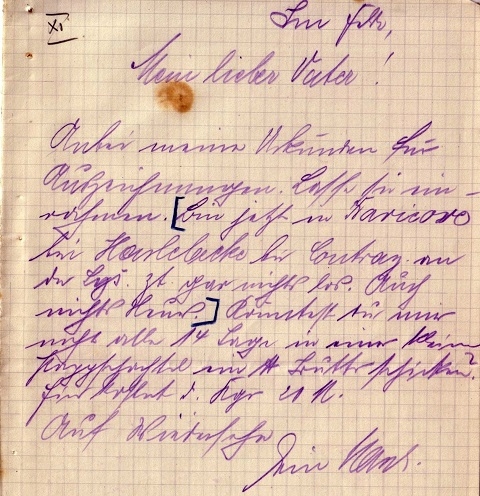 XI
Im Felde,
Mein lieber Vater!
Anbei meine Urkunden für
Auszeichnungen. Lasse sie ein-
rahmen. [Bin jetzt in Kavicove
bei Harlebecke bei Contray an
der Lys. zt. gar nichts los. Auch
nichts Neues.] Könntest du mir
nicht alle 14 Tage in einer kleinen
Pappschachtel ein ℔ Butter schicken?
hier kostet d. Kgr 20 M.
Auf Wiedersehn
Dein